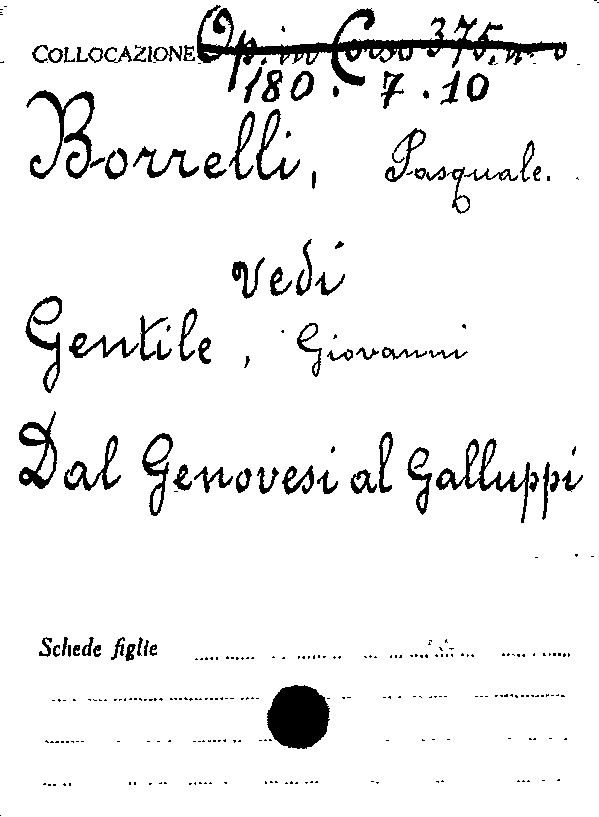 COLLOCAZIONE Op. in Corso 375. n. 0
180. 7. 10
Borrelli, Pasquale.
vedi
Gentile, Giovanni
Dal Genovesi al Galluppi
Schede figlie